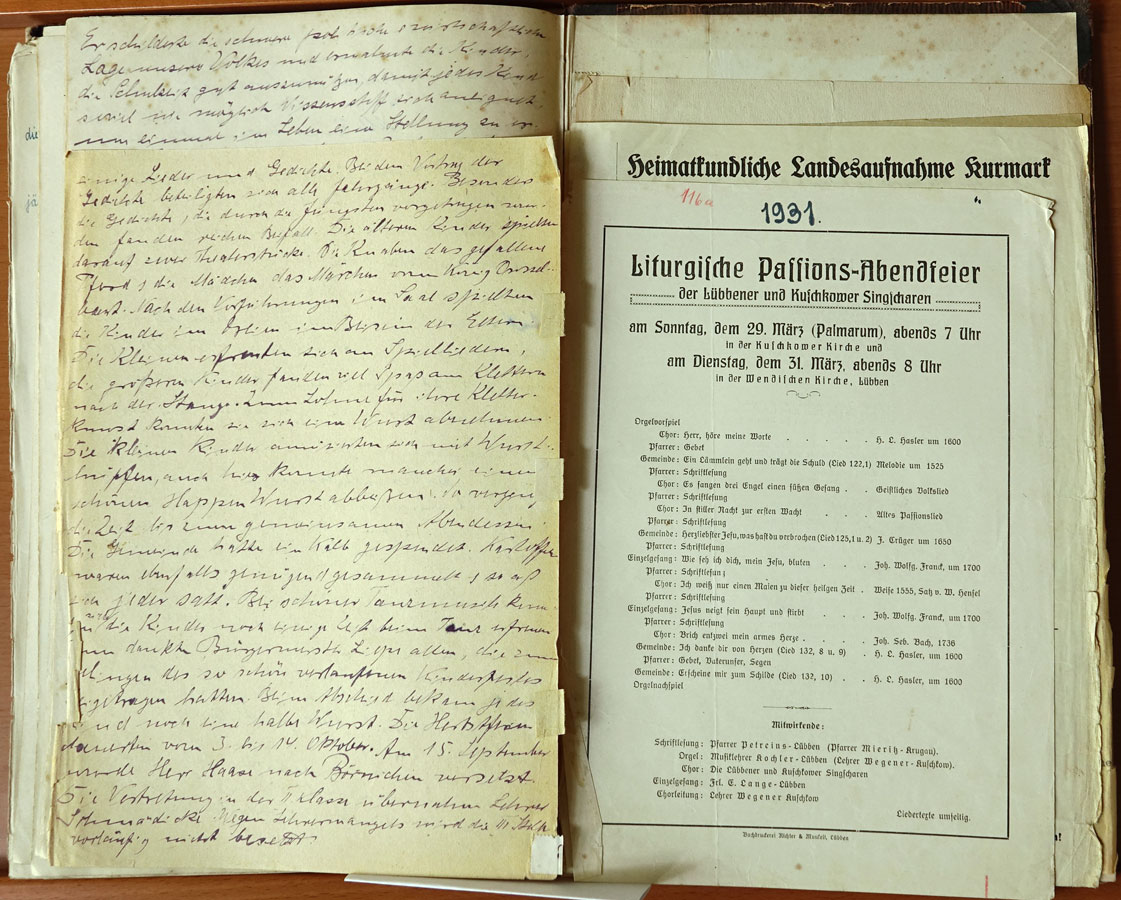 Er schilderte die schwere politische wirtschaftliche
Lage unseres Volkes und ermahnte die Kinder,
die Schulzeit gut auszunützen, damit jedes Kind
soviel wie möglich Wissensstoff sich aneignet,
um einmal im Leben eine Stellung zu er-
die
jä
einige Lieder und Gedichte. Bei dem Vortrag der
Gedichte beteiligten sich alle Jahrgänge. Besonders
die Gedichte, die durch die Jüngsten vorgetragen wur-
den fanden reichen Beifall. Die älteren Kinder spielten
darauf zwei Theaterstücke. Die Knaben das gefallene
Pferd, die Mädchen das Märchen vom König Drossel-
bart. Nach den Vorführungen im Saal spielten
die Kinder im Freien im Beisein der Eltern.
Die Kleinen erfreuten sich an Spielliedern,
die größeren Kinder fanden viel Spas am Klettern
nach der Stange. Zum Lohne für ihre Kletter-
kunst konnten sie sich eine Wurst abnehmen
Die kleinen Kinder amüsierten sich mit Wurst-
hüpfen, auch hier konnte mancher einen
schönen Happen Wurst abbeißen. So verging
die Zeit bis zum gemeinsamen Abendessen.
Die Gemeinde hatte ein Kalb gespendet. Kartoffeln
waren ebenfalls genügend gesammelt, so aß
sich jeder satt. Bei schöner Tanzmusik konn-
die Kinder noch einige Zeit beim Tanz erfreuen
dankte Bürgermeister allen, die zum
lingen des so schön verlaufenen Kinderfestes
eigetragen hatten. Beim Abschied bekam jedes
Kind noch eine halbe Wurst. Die Herbstferien
dauerten vom 3. bis 14. Oktober. Am 15. September
wurde Herr Haase nach Börnichen versetzt.
Die Vertretung in der II Klasse übernahm Lehrer
Schmädicke. Wegen Lehrermangels wird die III Stelle
vorläufig nicht besetzt
Heimatkundliche Landesaufnahme Kurmark
116a
1931.
Liturgische Passions-Abendfeier
der Lübbener und Kuschkower Singscharen
am Sonntag, dem 29. März (Palmarum), abends 7 Uhr
in der Kuschkower Kirche und
am Dienstag, dem 31. März, abends 8 Uhr
in der Wendischen Kirche, Lübben
Orgelvorspiel
Chor: Herr, höre meine Worte . . . . . H. L. Hasler um 1600
Pfarrer: Gebet
Gemeinde: Ein Lämmlein geht und trägt die Schuld (Lied 122,1) Melodie um 1525
Pfarrer: Schriftlesung
Chor: Es sangen drei Engel einen süßen Gesang . . Geistliches Volkslied
Pfarrer: Schriftlesung
Chor: In stiller Nacht zur ersten Wacht . . . Altes Passionslied
Pfarrer: Schriftlesung
Gemeinde: Herzliebster Jesu, was hast du verbrochen (Lied 125,1 u. 2) J. Crüger um 1650
Pfarrer: Schriftlesung
Einzelgesang: Wie seh ich dich, mein Jesu, bluten . . . . Joh. Wolfg. Franck, um 1700
Pfarrer: Schriftlesung
Chor: Ich weiß nur einen Maien zu dieser heilgen Zeit . Weise 1555, Satz v. W. Hensel
Pfarrer: Schriftlesung
Einzelgesang: Jesus neigt sein Haupt und stirbt . . . Joh. Wolfg. Franck, um 1700
Pfarrer: Schriftlesung
Chor: Brich entzwei mein armes Herze . . . . Joh. Seb. Bach, 1736
Gemeinde: Ich danke dir von Herzen (Lied 132, 8 u. 9) . H. L. Hasler, um 1600
Pfarrer: Gebet, Vaterunser, Segen
Gemeinde: Erscheine mir zum Schilde (Lied 132, 10) . . H. L. Hasler, um 1600
Orgelnachspiel
Mitwirkende:
Schriftlesung: Pfarrer Petreins-Lübben (Pfarrer Mieritz-Krugau).
Orgel: Musiklehrer Kochler-Lübben (Lehrer Wegener-Kuschkow).
Chor: Die Lübbener und Kuschkower Singscharen
Einzelgesang: Frl. E. Lange-Lübben
Chorleitung: Lehrer Wegener Kuschkow
Liedertexte umseitig.
Buchdruckerei Richter & Munkelt, Lübben